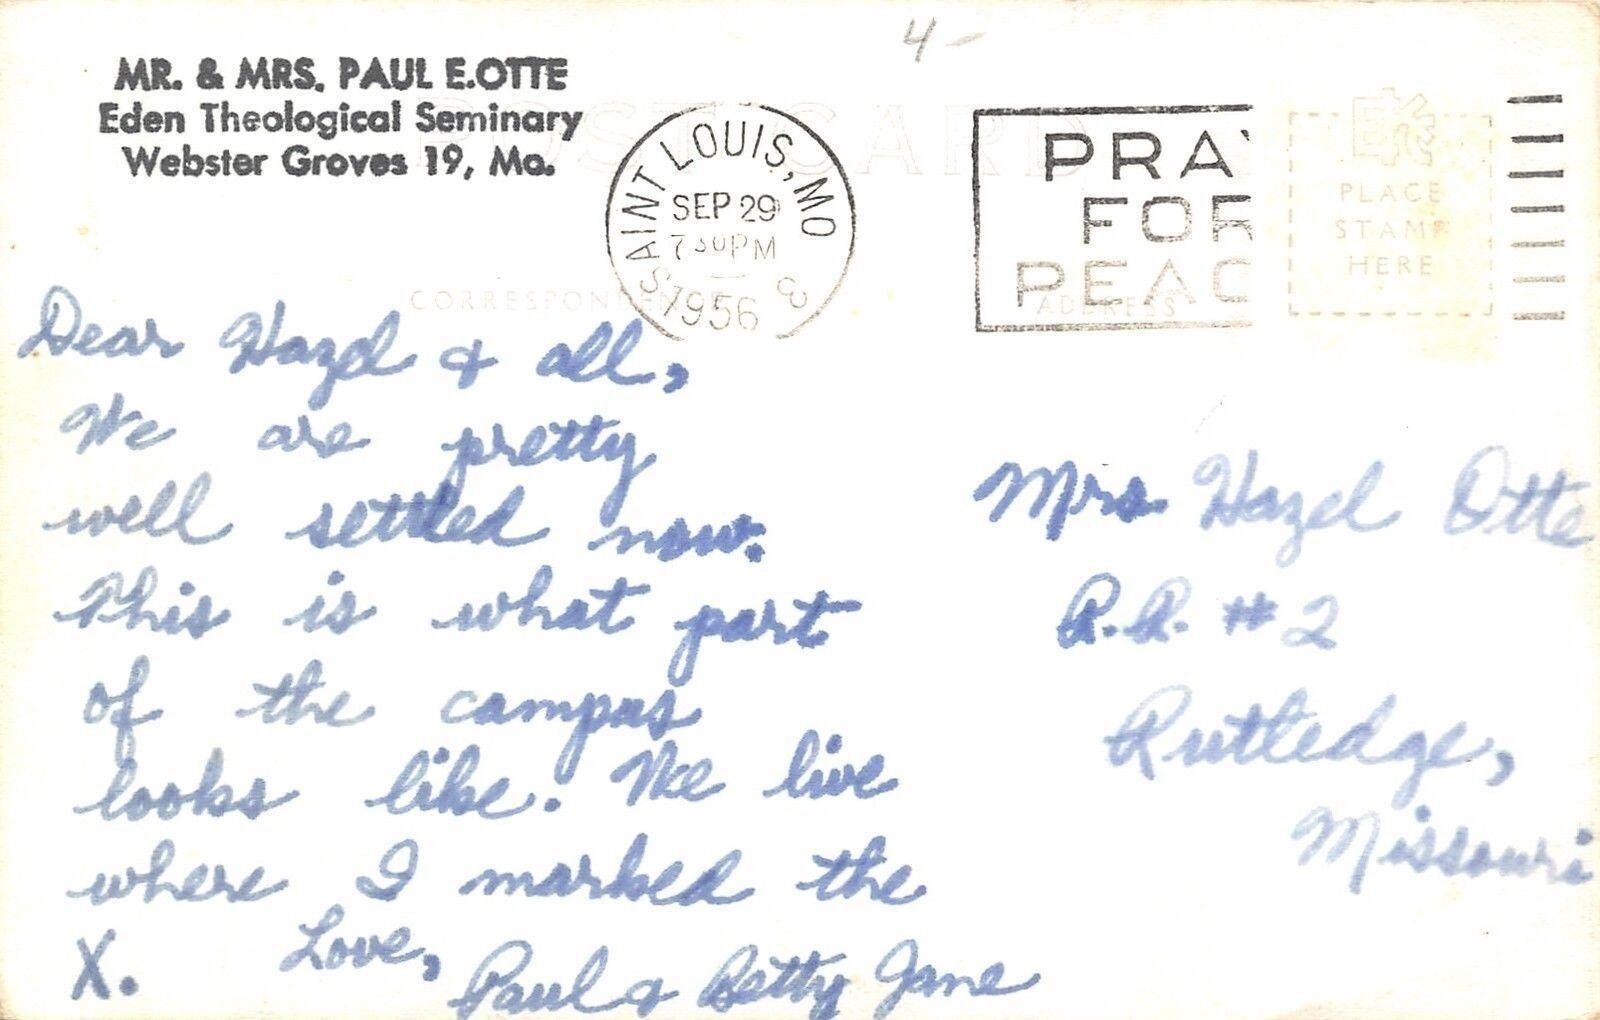 4-
MR. & MRS. PAUL E.OTTE
Eden Theological Seminary
Webster Groves 19, Mo.
POST CARD
SAINT LOUIS, MO
SEP 29
730PM
1956
3
PRAY
FOR
PEAC
PLACE
STAMP
HERE
CORRESPONDENCE
ADDRESS
Dear Hazel & all,
We are pretty
well settled now.
This is what part
of the campus
looks like. We live
where I marked the
X. Love,
Paul & Betty Jane
Mrs Hazel Otte
R.R. #2
Rutledge,
Missouri